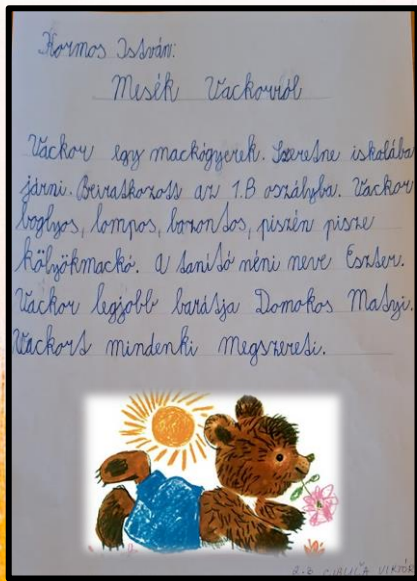 Kormos István:
Mesék Vackorról
Vackor egy mackógyerek. Szeretne iskolába
járni. Beiratkozott az 1.B oszályba. Vackor
boglyos, lompos, bozontos, piszén pisze
kölyökmackó. A tanító néni neve Eszter.
Vackor legjobb barátja Domokos Matyi.
Vackort mindenki megszereti.